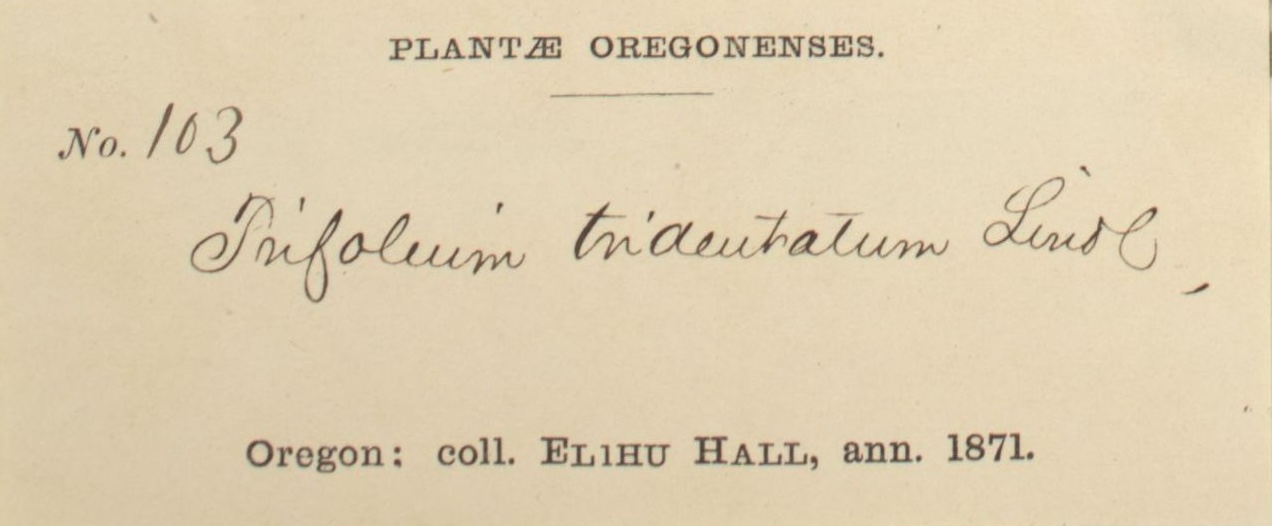 PLANTÆ OREGONENSES.
No. 103
Trifolium tridentatum Lindl,
Oregon: coll. ELIHU HALL, ann. 1871.